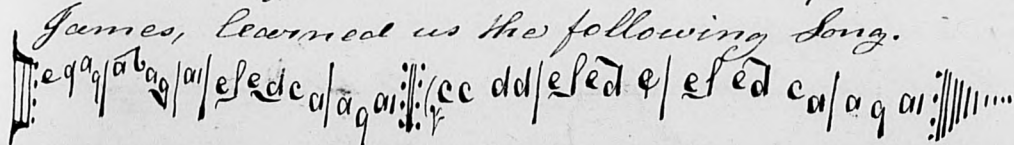 James, learned us the following Song.
e g a g | a b a g | a | e f e d c a | a g a :||: c c d d | e f e d e | e f e d c a | a g a :||